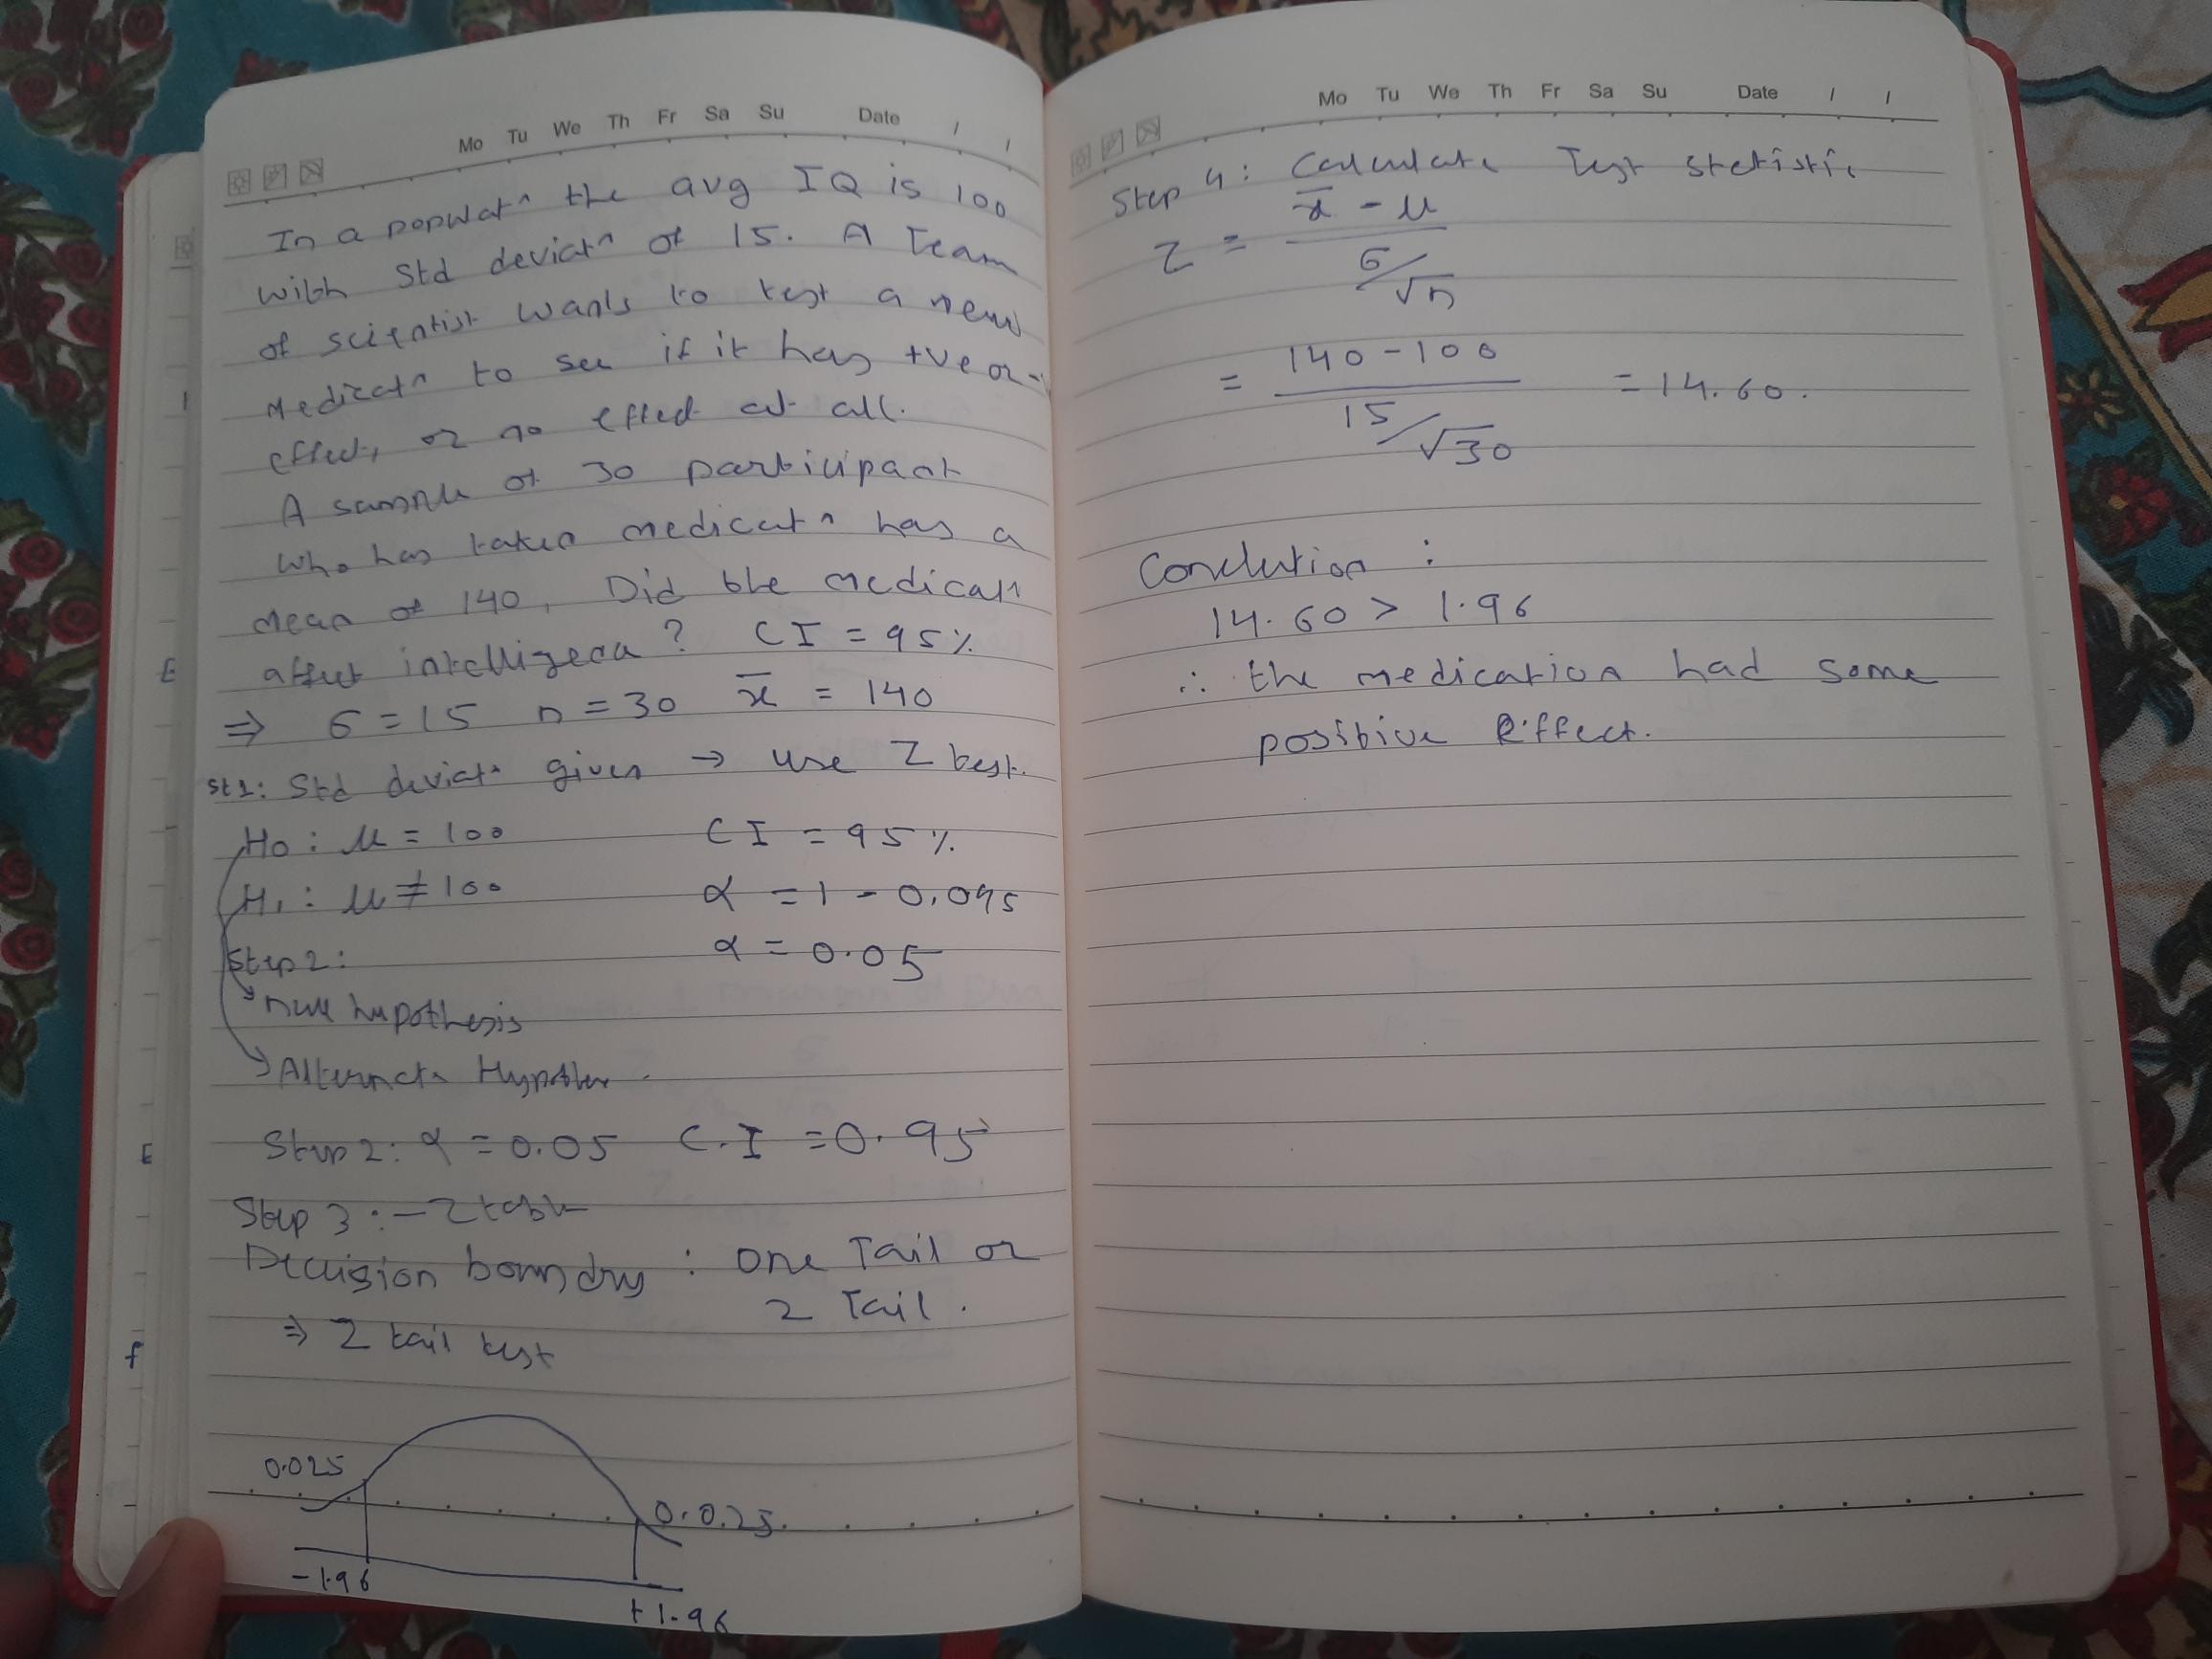 Mo Tu We Th Fr Sa Su Date / /
In a populatn the avg IQ is 100
with std deviatn of 15. A Team
of scientist wants to test a new
Medicatn to see if it has +ve or -ve
effect, or no effect at all.
A sample of 30 participant
who has taken medicatn has a
mean of 140. Did the medicatn
affect intelligence? CI = 95%
⇒ σ = 15 n = 30 x̄ = 140
st1: std deviatn given → use Z test.
H0 : μ = 100 CI = 95%
H1 : μ ≠ 100 α = 1 - 0.095
Step 2: α = 0.05
null hypothesis
Alternate Hypothes.
Step 2: α = 0.05 C.I = 0.95
Step 3 :- Z table
Decision boundry : One Tail or
2 Tail.
⇒ 2 tail test
0.025
0.025.
-1.96
+1.96
Mo Tu We Th Fr Sa Su Date / /
Step 4 : Calculate Test statistic
Z = x̄ - μ
σ/√n
= 140 - 100 = 14.60.
15/√30
Conclution :
14.60 > 1.96
∴ the medication had some
positive effect.